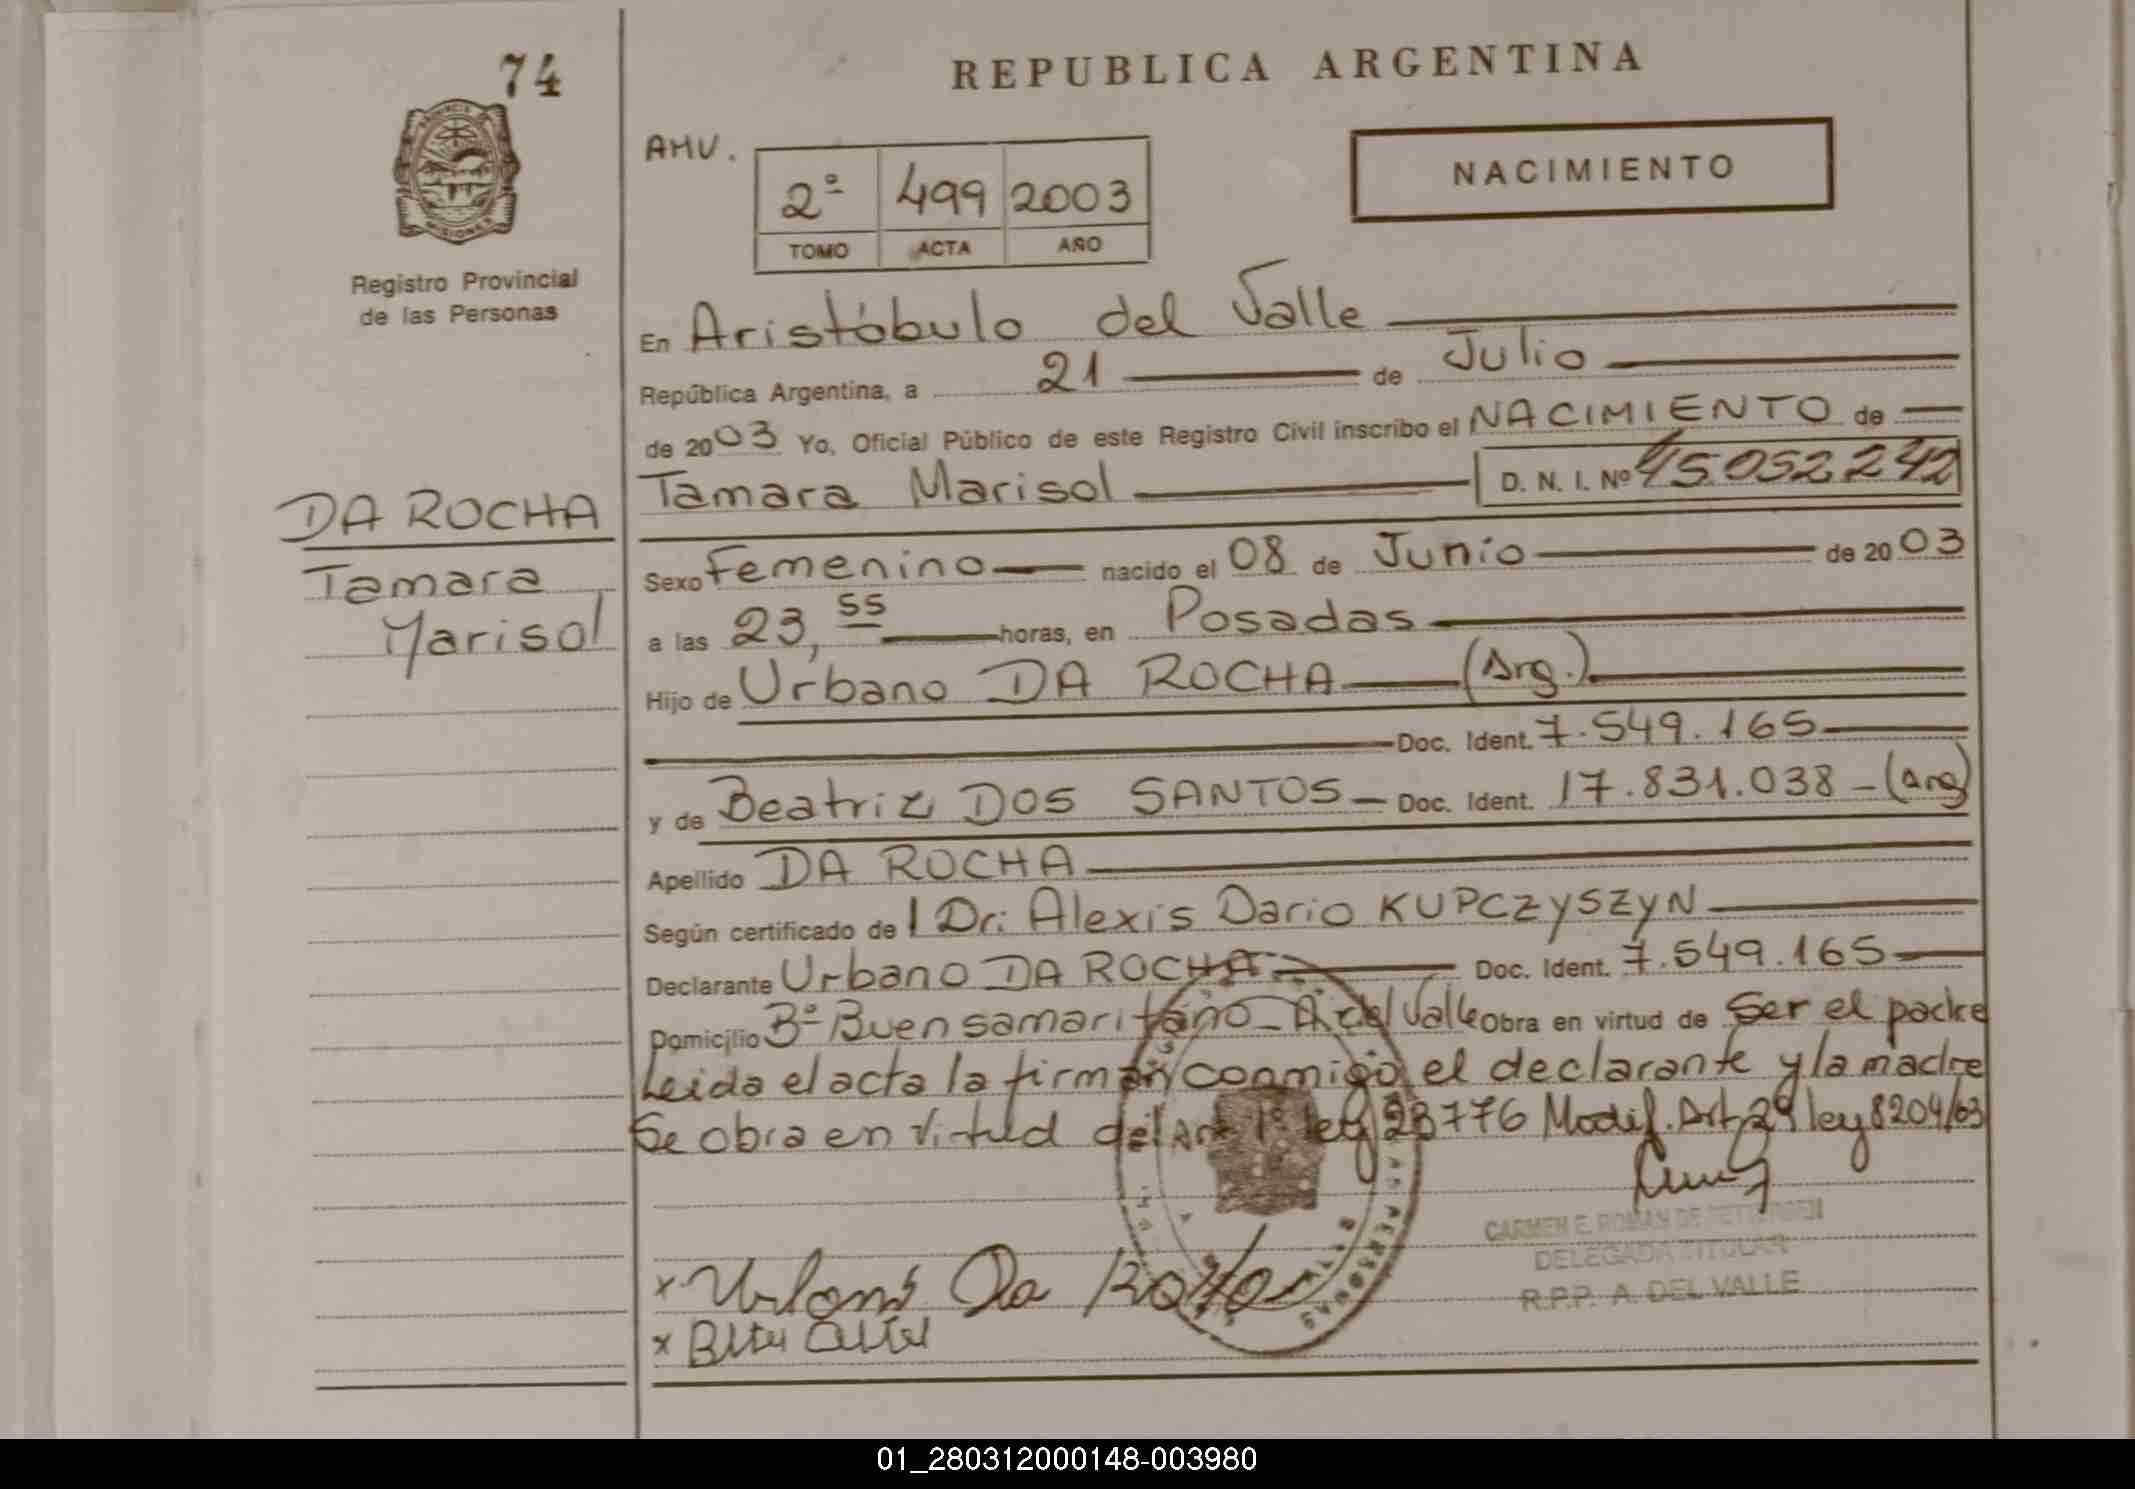 74
REPUBLICA ARGENTINA
AMV.
NACIMIENTO
2º 499 2003
TOMO ACTA AÑO
MISIONES
Registro Provincial
de las Personas
En Aristóbulo del Valle
República Argentina, a 21 de Julio
de 2003 Yo, Oficial Público de este Registro Civil inscribo el NACIMIENTO de
Tamara Marisol D. N. I. Nº 45.052.242
DA ROCHA
Tamara
Marisol
Sexo Femenino nacido el 08 de Junio de 2003
a las 23,55 horas, en Posadas
Hijo de Urbano DA ROCHA (Arg.)
Doc. Ident. 7.549.165
y de Beatriz DOS SANTOS Doc. Ident. 17.831.038 - (Arg)
Apellido DA ROCHA
Según certificado de l Dr. Alexis Dario KUPCZYSZYN
Declarante Urbano DA ROCHA Doc. Ident. 7.549.165
Domicilio Bº Buen samaritano - A. del Valle Obra en virtud de Ser el padre
Leida el acta la firman conmigo el declarante y la madre
Se obra en virtud del Art 1º ley 23776 Modif. Art 29 ley 8204/63
CARMEN E. ROMAN DE
DELEGADA TITULAR
R.P.P. A. DEL VALLE
x Urbano Da Rocha
x
PERSONAS
01_280312000148-003980